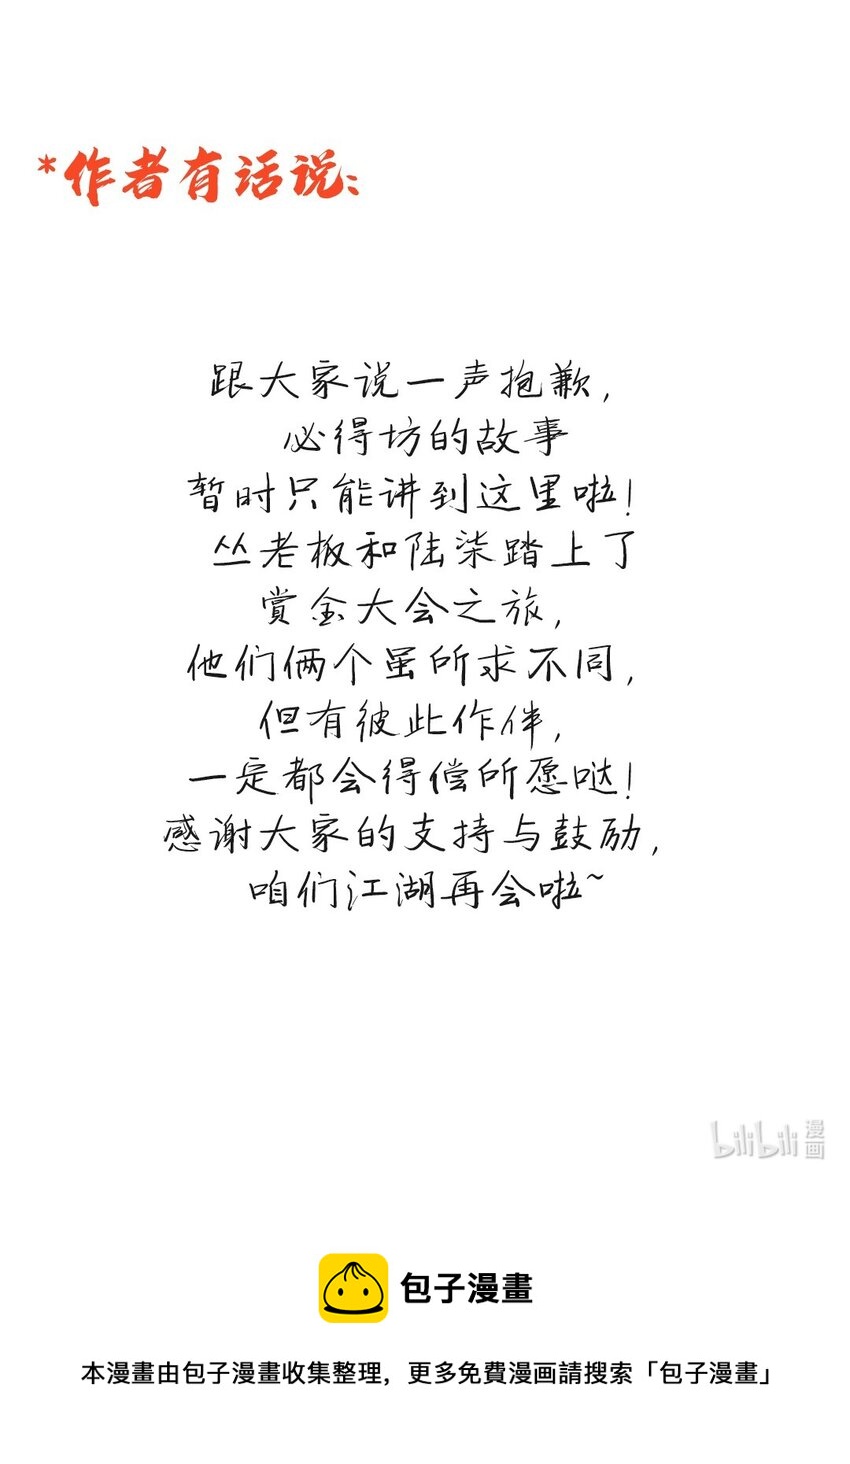 *作者有话说:
跟大家说一声抱歉,
必得坊的故事
暂时只能讲到这里啦!
丛老板和陆柒踏上了
赏金大会之旅,
他们俩个虽所求不同,
但有彼此作伴,
一定都会得偿所愿哒!
感谢大家的支持与鼓励,
咱们江湖再会啦~
bilibili 漫画
包子漫畫
本漫畫由包子漫畫收集整理，更多免費漫画請搜索「包子漫畫」